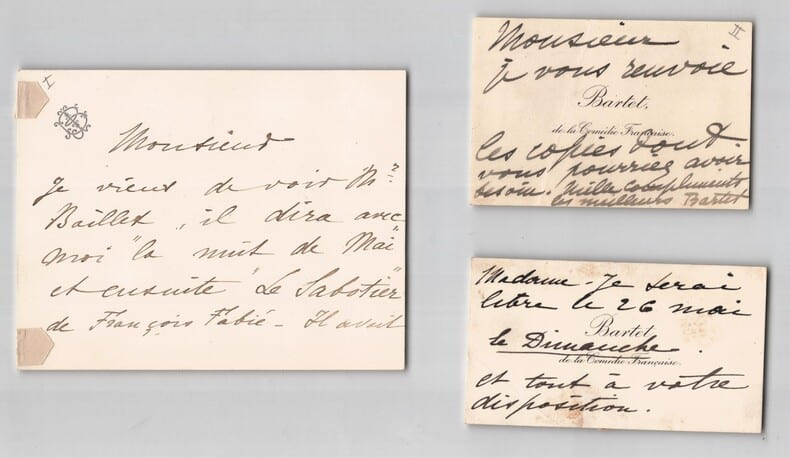 I
Monsieur
je viens de voir Mr
Baillet, il dira avec
moi "la nuit de Mai"
et ensuite "Le Sabotier"
de François Fabié - Il avait
II
Monsieur
je vous renvoie
Bartet,
de la Comédie Française.
les copies dont
vous pourriez avoir
besoin. Mille compliments
les meilleurs Bartet
Madame - Je serai
libre le 26 mai
Bartet
le Dimanche.
de la Comédie Française.
et tout à votre
disposition.